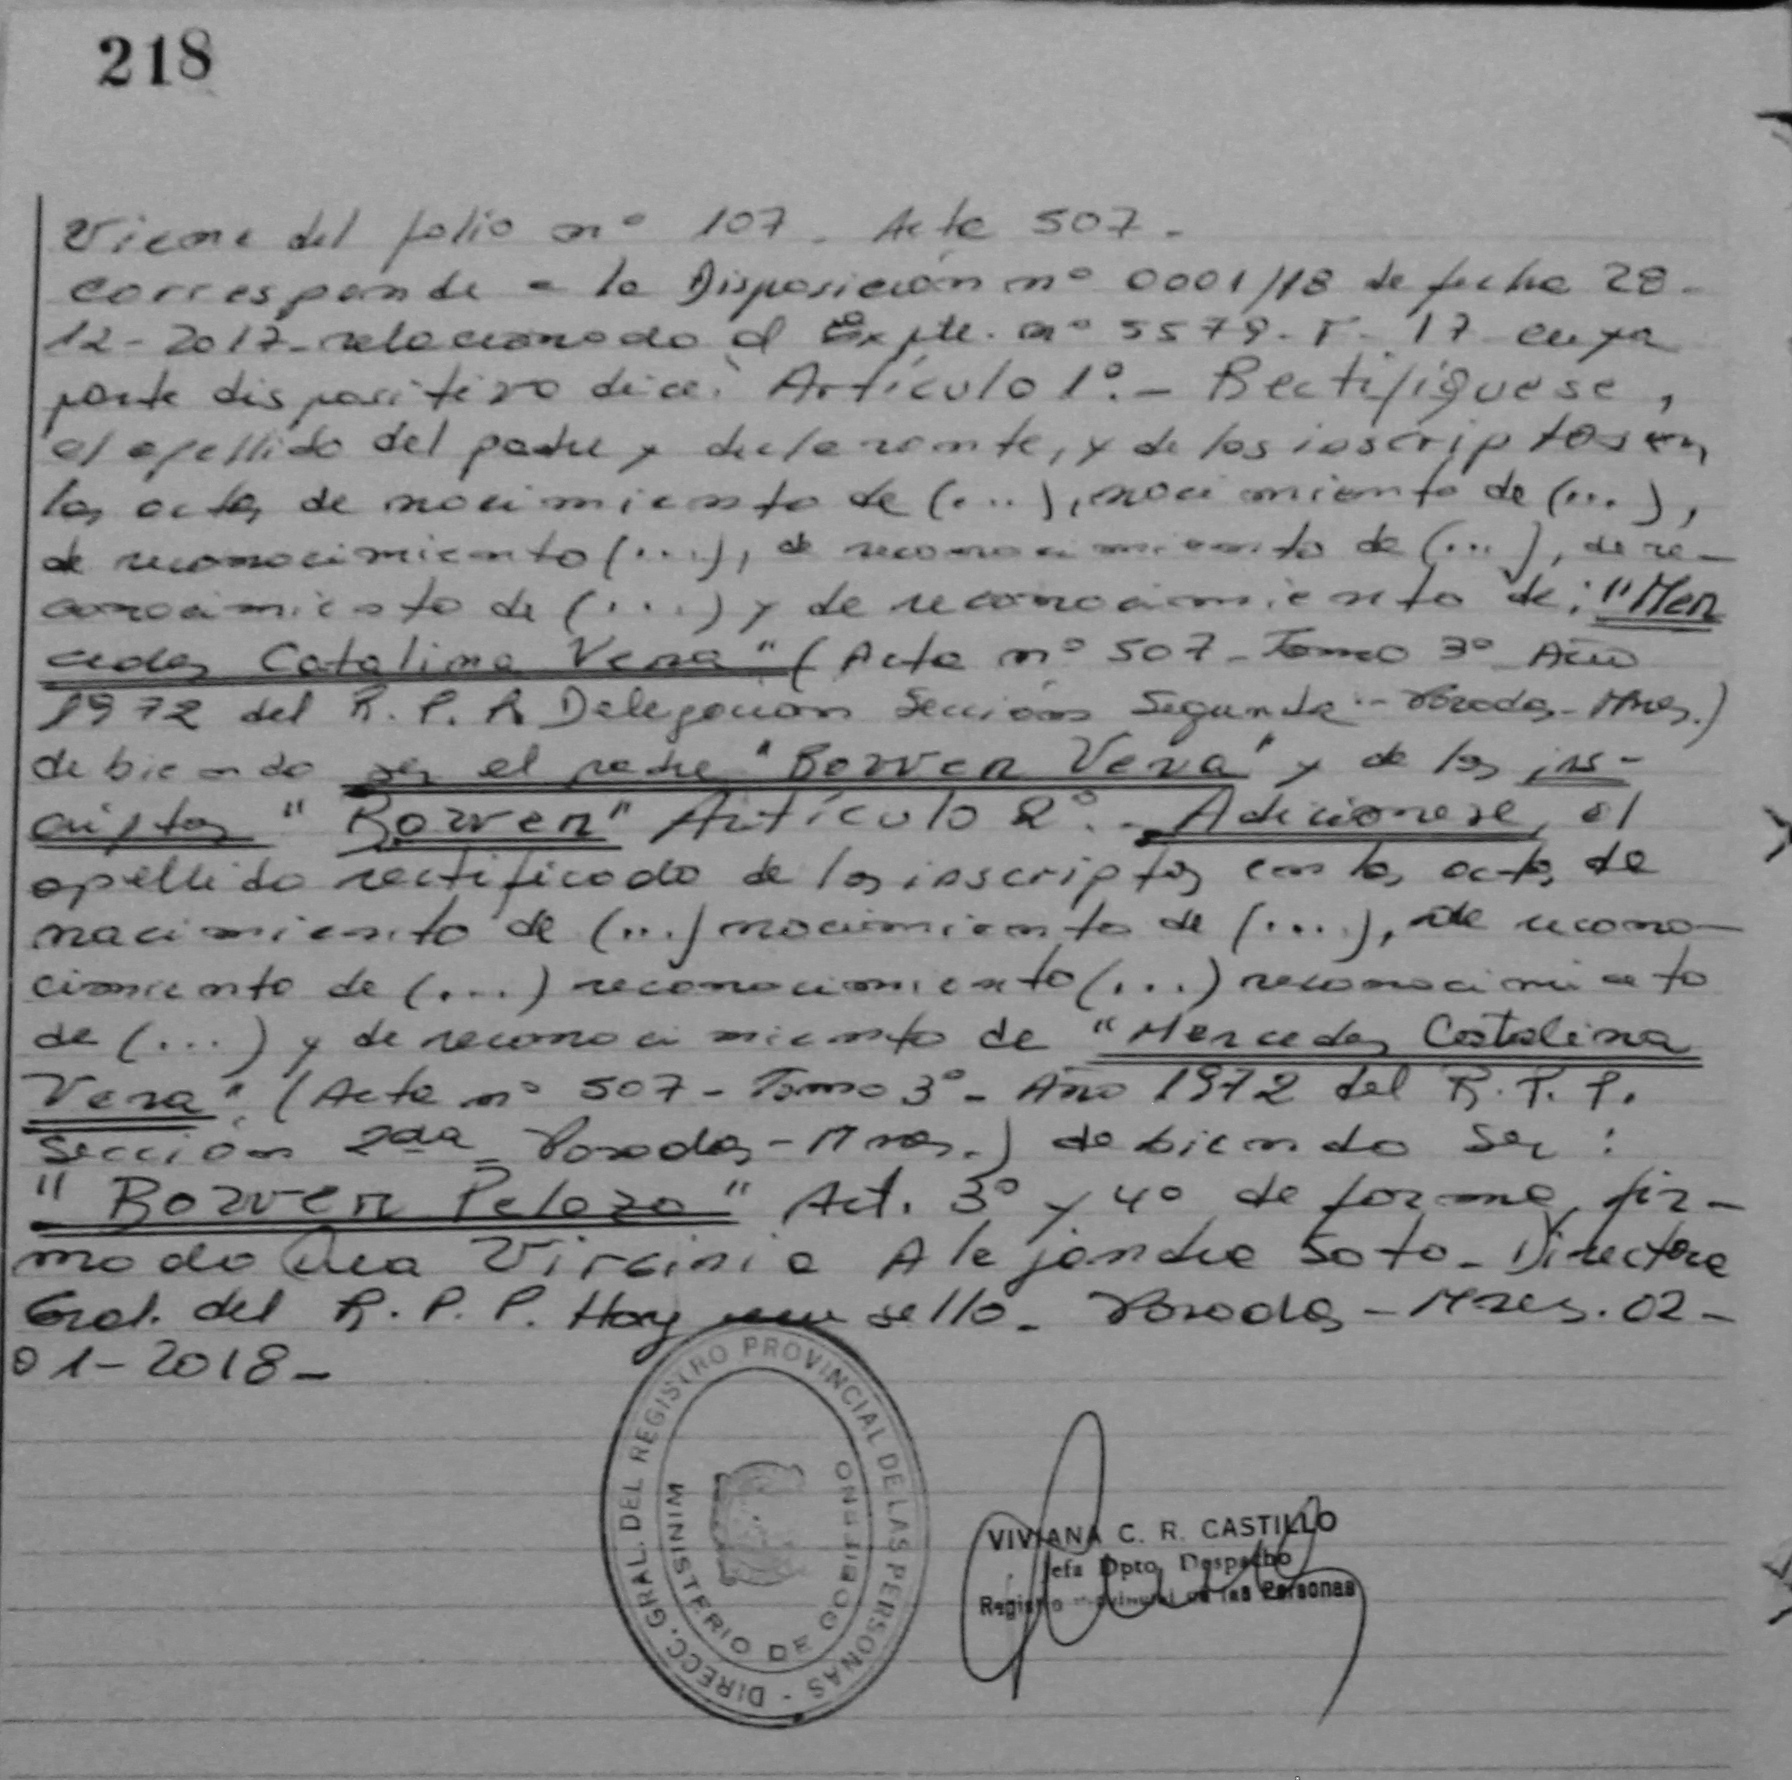 218
Viene del folio nº 107. Acta 507.
corresponde a la Disposición nº 0001/18 de fecha 28-
12-2017 relacionado al Expte. nº 5579-F-17 cuya
parte dispositiva dice: Artículo 1º.- Rectifíquese,
el apellido del padre y declarante, y de los inscriptos en
las actas de nacimiento de (...), nacimiento de (...),
de reconocimiento (...), de reconocimiento de (...), de re-
conocimiento de (...) y de reconocimiento de: "Mer
cedes Catalina Vera" (Acta nº 507 - Tomo 3º Año
1972 del R.P.P. Delegación Sección Segunda - Posadas - Mnes.)
debiendo ser el padre "Borven Vera" y de los ins-
criptos "Borven" Artículo 2º.- Adicionese, el
apellido rectificado de los inscriptos en las actas de
nacimiento de (...) nacimiento de (....), de recono-
cimiento de (....) reconocimiento (...) reconocimiento
de (...) y de reconocimiento de "Mercedes Catalina
Vera". (Acta nº 507 - Tomo 3º - Año 1972 del R.P.P.
Sección 2da - Posadas - Mnes.) debiendo ser:
"Borven Pelozo" Art. 3º y 4º de forma, fir-
mado Dra Virginia Alejandra Soto - Directora
Gral. del R.P.P. Hay un sello - Posadas - Mnes. 02-
01-2018-
DIRECC. GRAL. DEL REGISTRO PROVINCIAL DE LAS PERSONAS -
MINISTERIO DE GOBIERNO
VIVIANA C. R. CASTILLO
Jefa Dpto. Despacho
Registro Provincial de las Personas